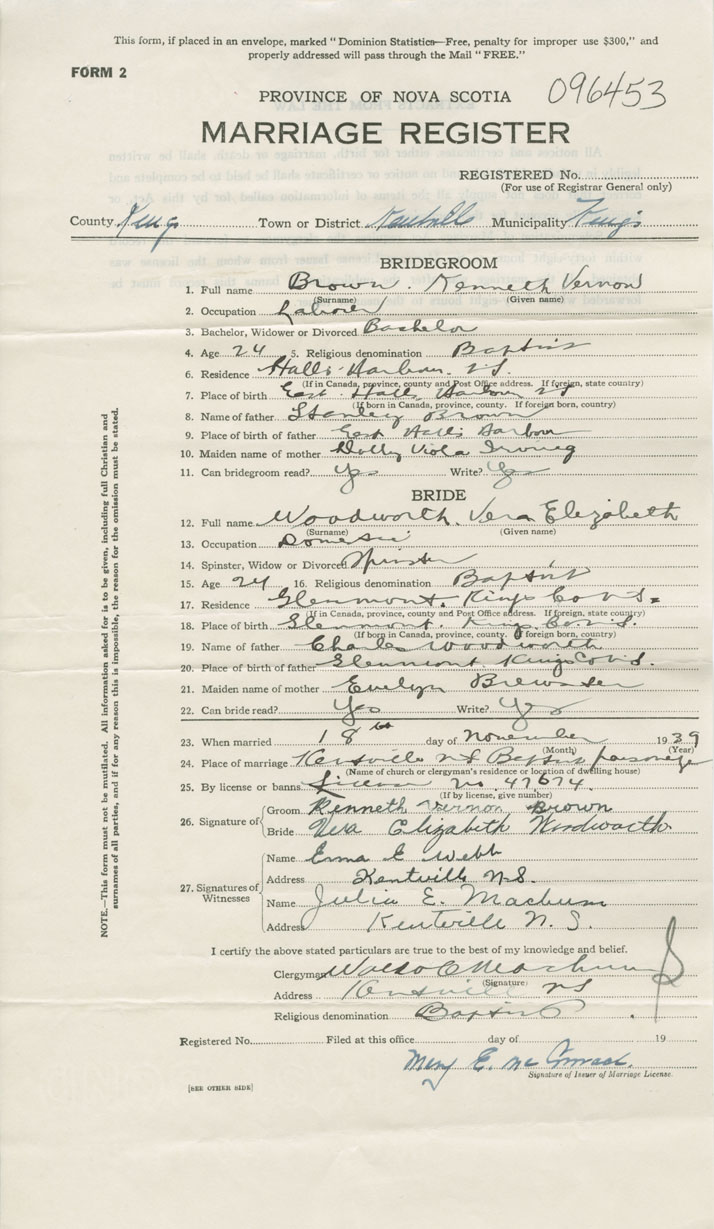 This form, if placed in an envelope, marked "Dominion Statistics—Free, penalty for improper use $300," and
properly addressed will pass through the Mail "FREE."
FORM 2
096453
PROVINCE OF NOVA SCOTIA
MARRIAGE REGISTER
REGISTERED No.
(For use of Registrar General only)
County Kings Town or District Kentville Municipality Kings
BRIDEGROOM
1. Full name Brown. Kenneth Vernon
(Surname) (Given name)
2. Occupation Laborer
3. Bachelor, Widower or Divorced Bachelor
4. Age 24 5. Religious denomination Baptist
6. Residence Halls Harbour. N.S.
(If in Canada, province, county and Post Office address. If foreign, state country)
7. Place of birth East Halls Harbour NS
(If born in Canada, province, county. If foreign born, country)
8. Name of father Stanley Brown
9. Place of birth of father East Halls Harbour
10. Maiden name of mother Dolly Viola Irving
11. Can bridegroom read? Yes Write? Yes
BRIDE
12. Full name Woodworth, Vera Elizabeth
(Surname) (Given name)
13. Occupation Domestic
14. Spinster, Widow or Divorced Spinster
15. Age 24 16. Religious denomination Baptist
17. Residence Glenmont. Kings Co N.S.
(If in Canada, province, county and Post Office address. If foreign, state country)
18. Place of birth Glenmont. Kings Co. N.S.
(If born in Canada, province, county. If foreign born, country)
19. Name of father Charles Woodworth
20. Place of birth of father Glenmont Kings Co N.S.
21. Maiden name of mother Evelyn Brewster
22. Can bride read? Yes Write? Yes
23. When married 18th day of November 1939
(Month) (Year)
24. Place of marriage Kentville NS Baptist parsonage
(Name of church or clergyman's residence or location of dwelling house)
25. By license or banns License No. 47674
(If by license, give number)
26. Signature of Groom Kenneth Vernon Brown
Bride Vera Elizabeth Woodworth
27. Signatures of Witnesses Name Erma E Webb
Address Kentville N.S.
Name Julia E. Machum
Address Kentville N. S.
I certify the above stated particulars are true to the best of my knowledge and belief.
Clergyman Waldo C Machum
(Signature)
Address Kentville NS
Religious denomination Baptist
Registered No. Filed at this office day of 19
Mary E.
Signature of Issuer of Marriage License.
[SEE OTHER SIDE]
NOTE.—This form must not be mutilated. All information asked for is to be given, including full Christian and
surnames of all parties, and if for any reason this is impossible, the reason for the omission must be stated.